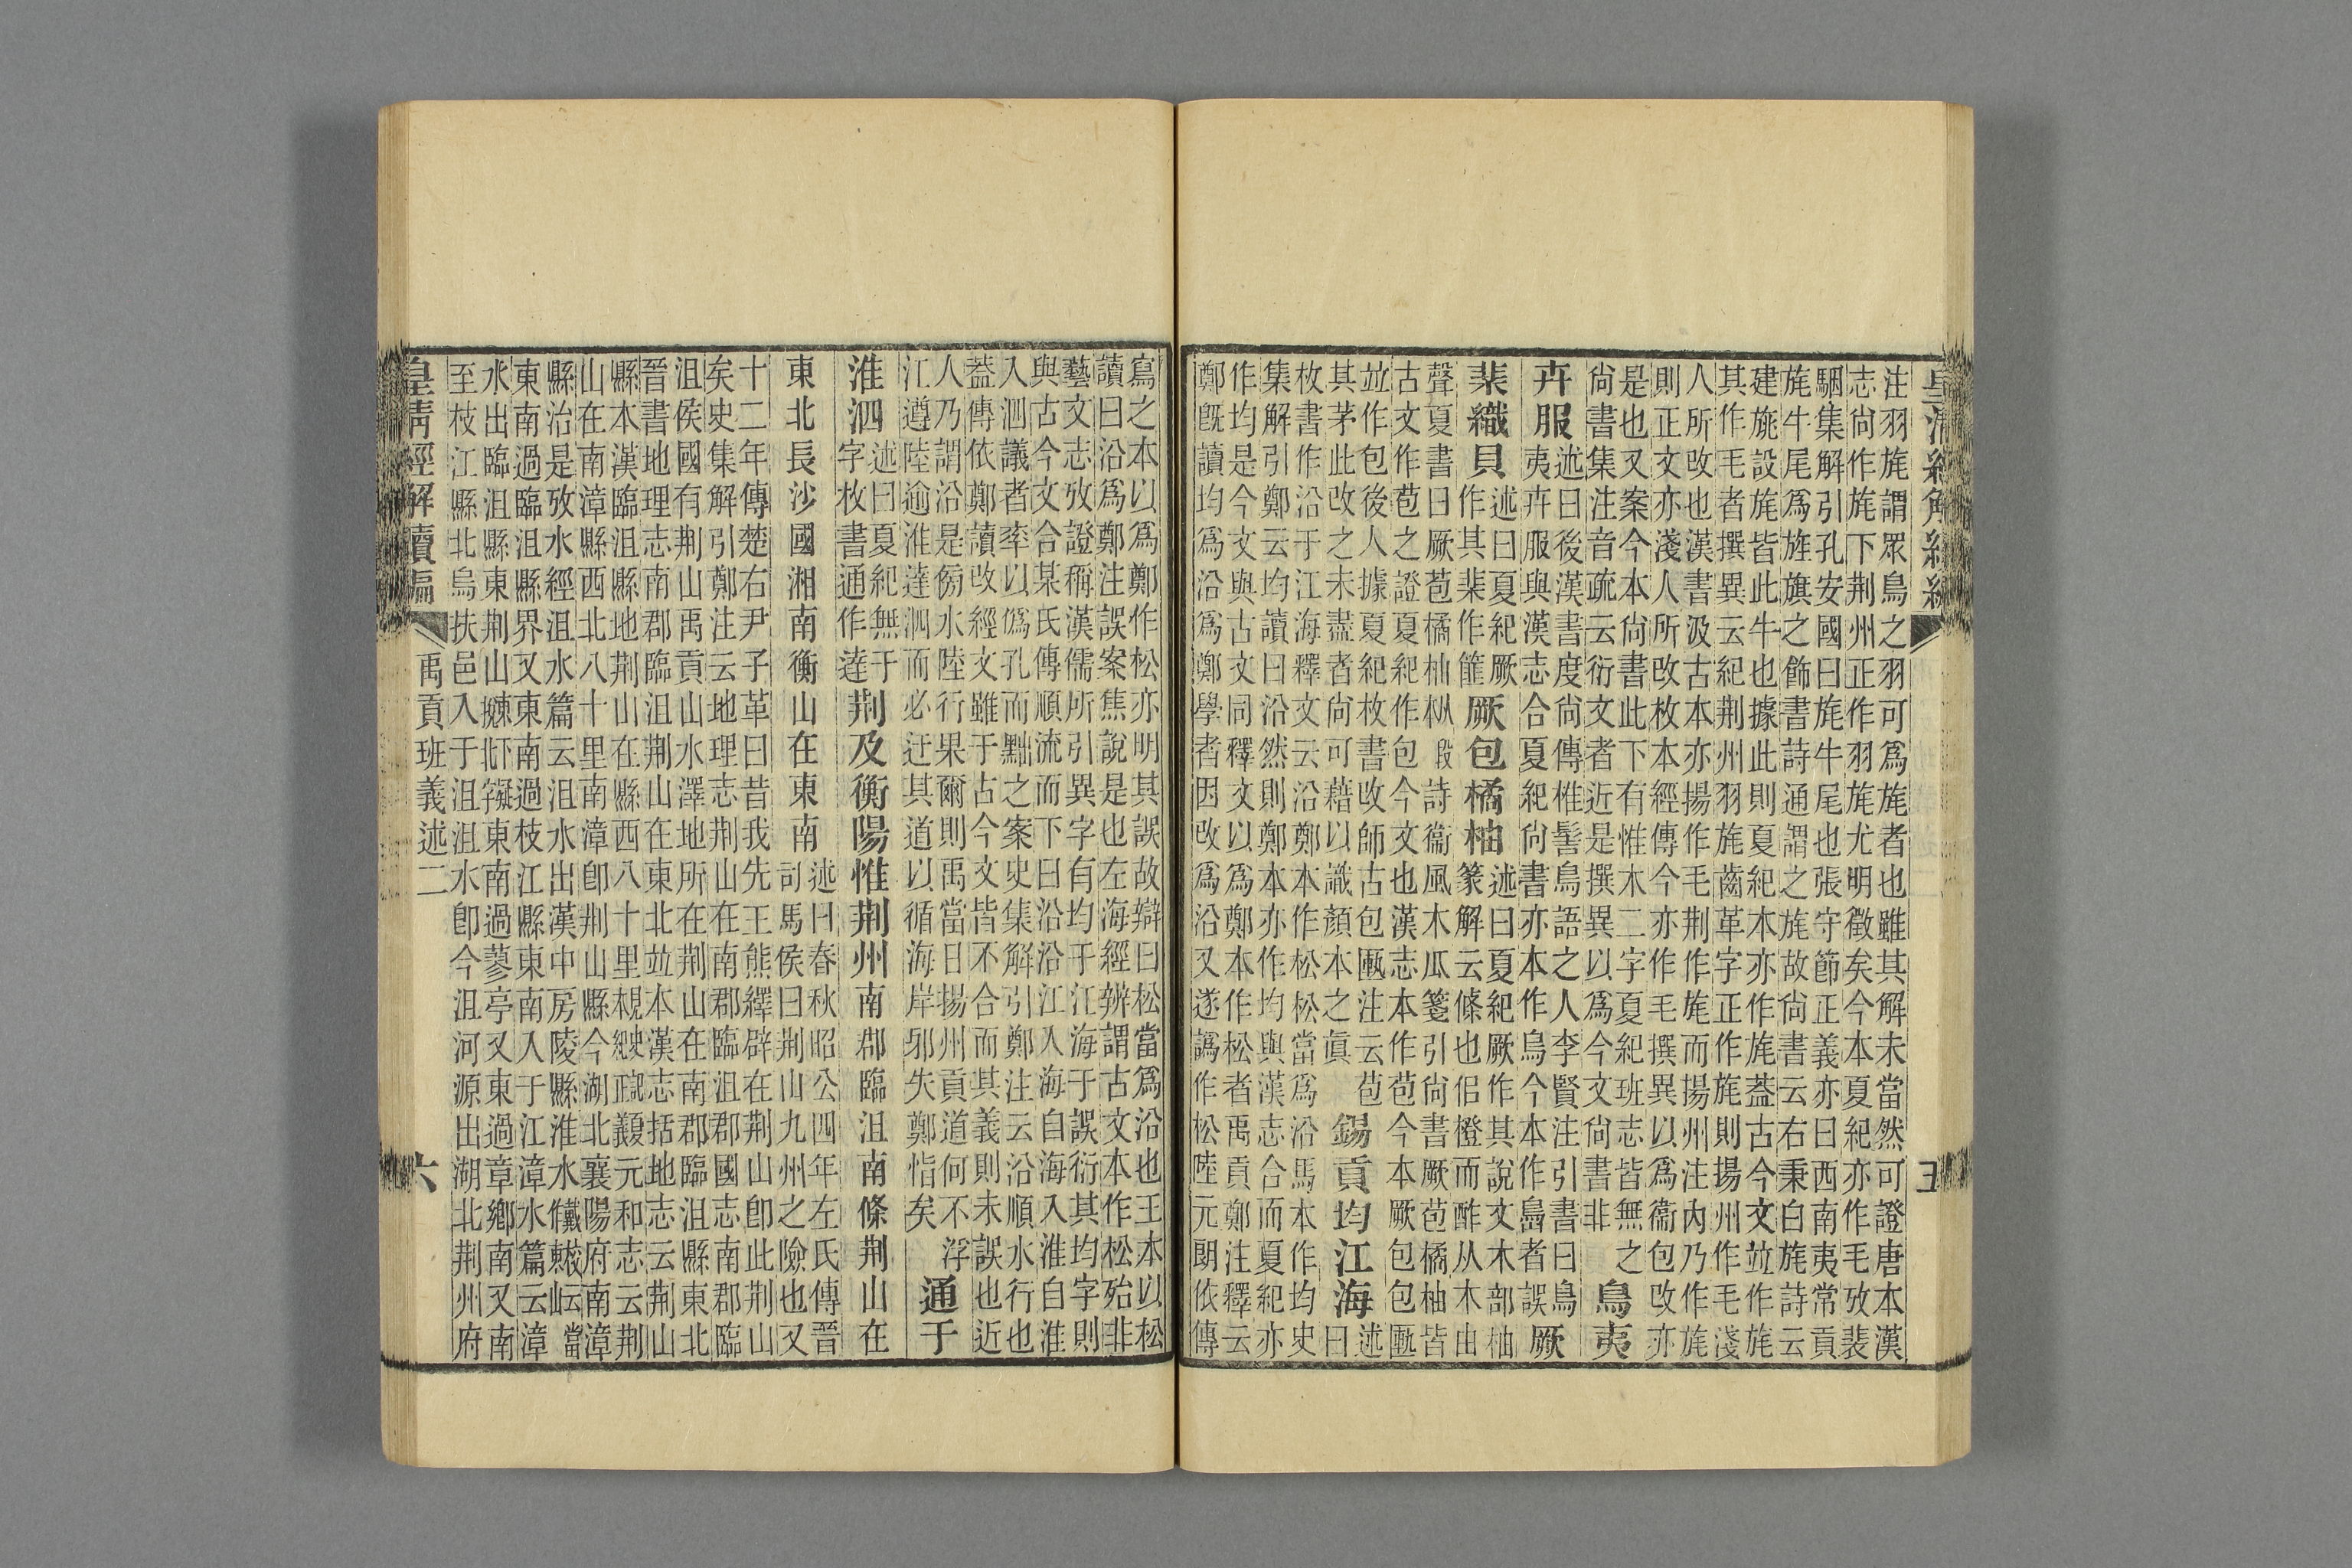 注羽旄謂眾鳥之羽可為旄者也雖其解未當然可證唐本漢
志尚作旄下荆州正作羽旄尤明徵矣今本夏紀亦作毛攷裴
駰集解引孔安國曰旄牛尾也張守節正義亦曰西南夷常貢
旄牛尾為旌旗之飾書詩通謂之旄故尚書云右秉白旄詩云
建旐設旄皆此牛也據此則夏紀本亦作旄葢古今文竝作旄
其作毛者撰異云紀荆州羽旄齒革字正作旄則揚州作毛淺
人所改也漢書汲古本亦揚作毛荆作旄而揚州注內乃作旄
則正文亦淺人所改枚本經傳今亦作毛撰異以為衞包改亦
是也又案今本尚書此下有惟木二字夏紀班志皆無之
尚書集注音疏云衍文者近是撰異以為今文尚書非
鳥夷
卉服
述曰後漢書度尚傳椎髻鳥語之人李賢注引書曰鳥
夷卉服與漢志合夏紀尚書亦本作鳥今本作島者誤
厥
棐織貝
述曰夏紀厥
作其棐作篚
厥包橘柚
述曰夏紀厥作其說文木部柚
篆解云條也佀橙而酢从木由
聲夏書曰厥苞橘柚枞段詩衞風木瓜箋引尚書厥苞橘柚皆
古文作苞之證夏紀作包今文也漢志本作苞今本厥包包匭
竝作包後人據夏紀枚書改師古包匭注云苞
其茅此改之未盡者尚可藉以識顏本之真
錫貢均江海
述
曰
枚書作沿于江海釋文云沿鄭本作松松當為沿馬本作均史
集解引鄭云均讀曰沿然則鄭本亦作均與漢志合而夏紀亦
作均是今文與古文同釋文以為鄭本作松者禹貢鄭注釋云
鄭既讀均為沿為鄭學者因改為沿又遂譌作松陸元朗依傳
五
寫之本以為鄭作松亦明其誤故辯曰松當為沿也王本以松
讀曰沿為鄭注誤案焦說是也左海經辨謂古文本作松殆非
藝文志攷證稱漢儒所引異字有均于江海于誤衍其均字則
與古今文合某氏傳順流而下曰沿沿江入海自海入淮自淮
入泗議者率以偽孔而黜之案史集解引鄭注云沿順水行也
葢傳依鄭讀改經文雖于古今文皆不合而其義則未誤也近
人乃謂沿是傍水陸行果爾則禹當日揚州貢道何不浮
江遵陸逾淮達泗而必迂其道以循海岸邪失鄭恉矣
通于
淮泗
述曰夏紀無于
字枚書通作達
荆及衡陽惟荆州南郡臨沮南條荆山在
東北長沙國湘南衡山在東南
述曰春秋昭公四年左氏傳晉
司馬侯曰荆山九州之險也又
十二年傳楚右尹子革曰昔我先王熊繹辟在荆山即此荆山
矣史集解引鄭注云地理志荆山在南郡臨沮郡國志南郡臨
沮侯國有荆山禹貢山水澤地所在荆山在南郡臨沮縣東北
晉書地理志南郡臨沮荆山在東北竝本漢志括地志云荆山
縣本漢臨沮縣地荆山在縣西八十里元和志云荆
山在南漳縣西北八十里南漳即荆山縣今湖北襄陽府南漳
縣治是攷水經沮水篇云沮水出漢中房陵縣淮水
東南過臨沮縣界又東南過枝江縣東南入于江漳水篇云漳
水出臨沮縣東荆山東南過蓼亭又東過章鄉南又南
至枝江縣北烏扶邑入于沮沮水即今沮河源出湖北荆州府
皇清經解續編 禹貢班義述二 六